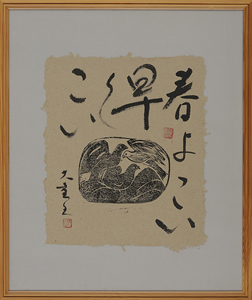 春よこい
早く
こい